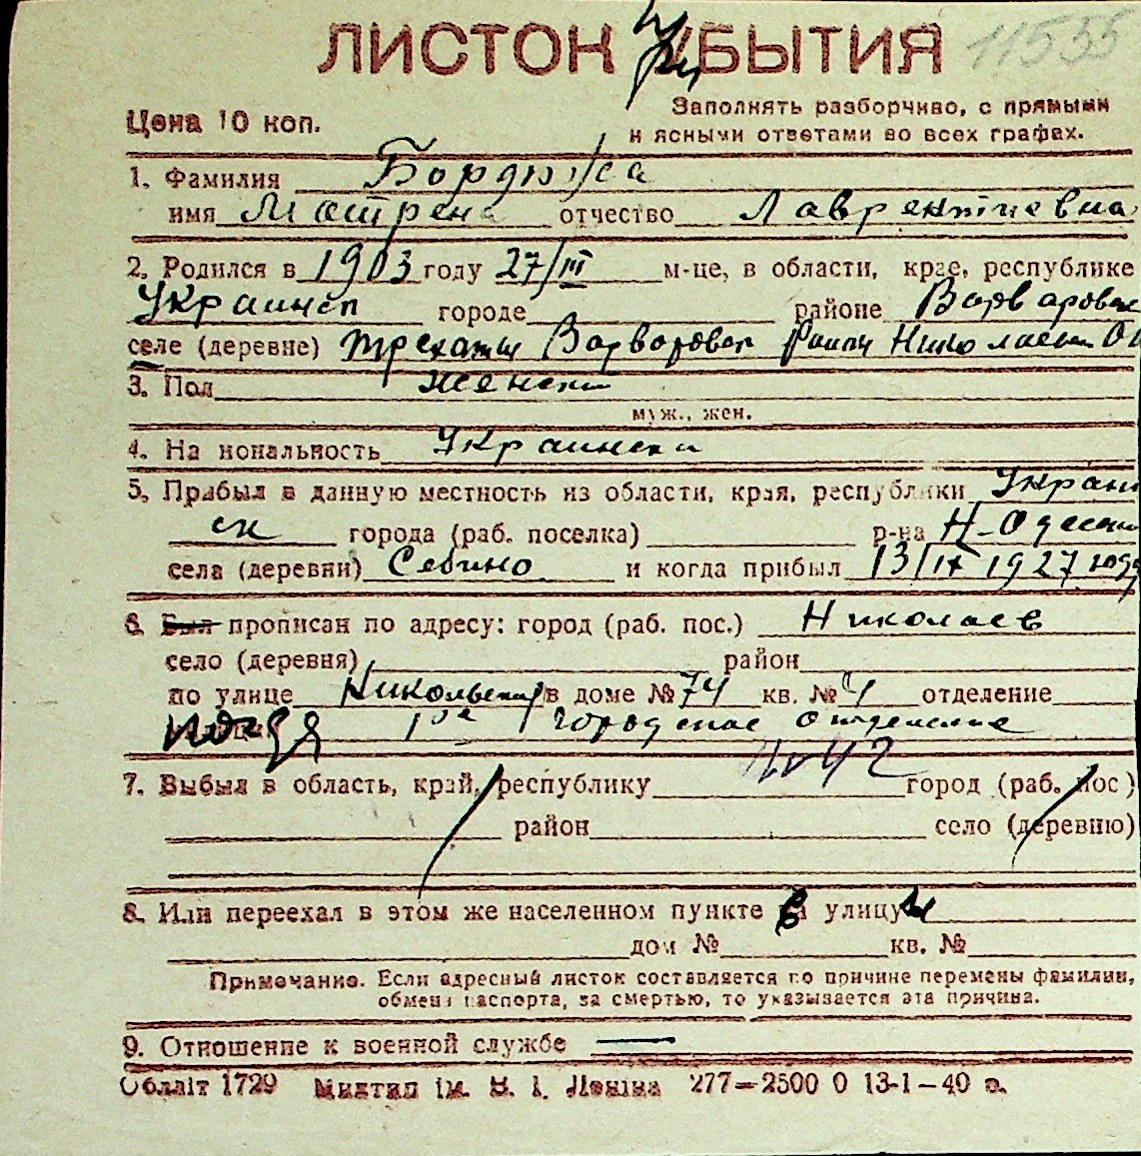 ЛИСТОК УБЫТИЯ 11535
Цена 10 коп.
Заполнять разборчиво, с прямыми
и ясными ответами во всех графах.
1. Фамилия
имя Мотрена отчество Лаврентиевна
2. Родился в 1903 году 27/III м-це, в области, крае, республике
Украинск городе районе Варваровск
селе (деревне) Трехаты Варваровск
3. Пол Женски
муж., жен.
4. Национальность Украинска
5. Прибыл в данную местность из области, края, республики Украин
ск города (раб. поселка) р-на Н-Одесск
села (деревни) Себино и когда прибыл 13/IX 1927 году
6. Был прописан по адресу: город (раб. пос.) Николаев
село (деревня) район
по улице Никольская в доме № 74 кв. № 4 отделение
1ое городское отделение
7. Выбыл в область, край, республику город (раб. пос)
район село (деревню)
8. Или переехал в этом же населенном пункте в улицы
дом № кв. №
Примечание. Если адресный листок составляется по причине перемены фамилии,
обмена паспорта, за смертью, то указывается эта причина.
9. Отношение к военной службе —
Облліт 1729 Миктип ім. В. І. Леніна 277—2500 0 13-1—40 р.